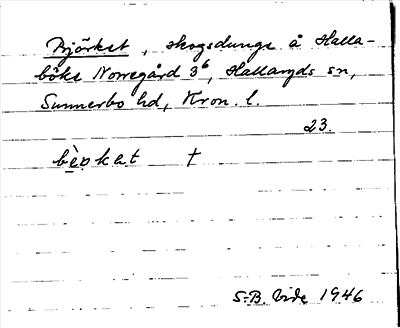 Björket, skogsdunge å Halla-
böke Norregård 3⁶, Hallaryds sn,
Sunnerbo hd, Kron. l.
23.
bèrkat †
S-B. Vide 1946